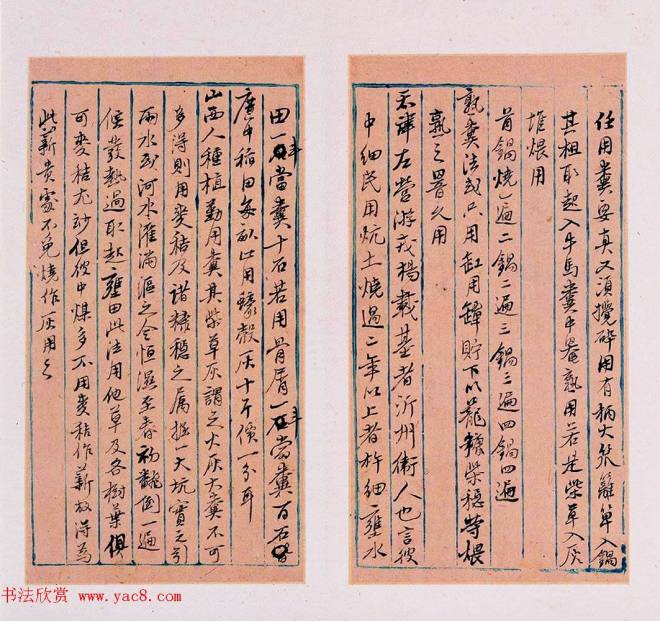 任用糞要真又須攪碎用有柄大笊籬單入鍋
其粗取起入牛馬糞中罨熟用若是柴草入灰
堆煨用
首鍋燒一遍二鍋二遍三鍋三遍四鍋四遍
熟糞法或只用缸用罈貯下以礱糠柴穗等煨
熟之畧久用
天津左營游戎楊戴基者沂州衛人也言彼
中細民用炕土燒過二年以上者杵細壅水
田一斗當糞十石若用骨屑一斗當糞百石
廣中稻田每畝止用蠔殼灰十斤價一分耳
山西人種植勤用糞其柴草灰謂之火灰大糞不可
多得則用麥秸及諸糠穗之属掘一大坑實之引
雨水或河水灌滿漚之令恒濕至春初翻倒一遍
候發熱過取起壅田此法用他草及各樹葉俱
可麥秸尤妙但彼中煤多不用麥秸作薪故得為
此薪貴處不免燒作灰用之
书法欣赏 www.yac8.com